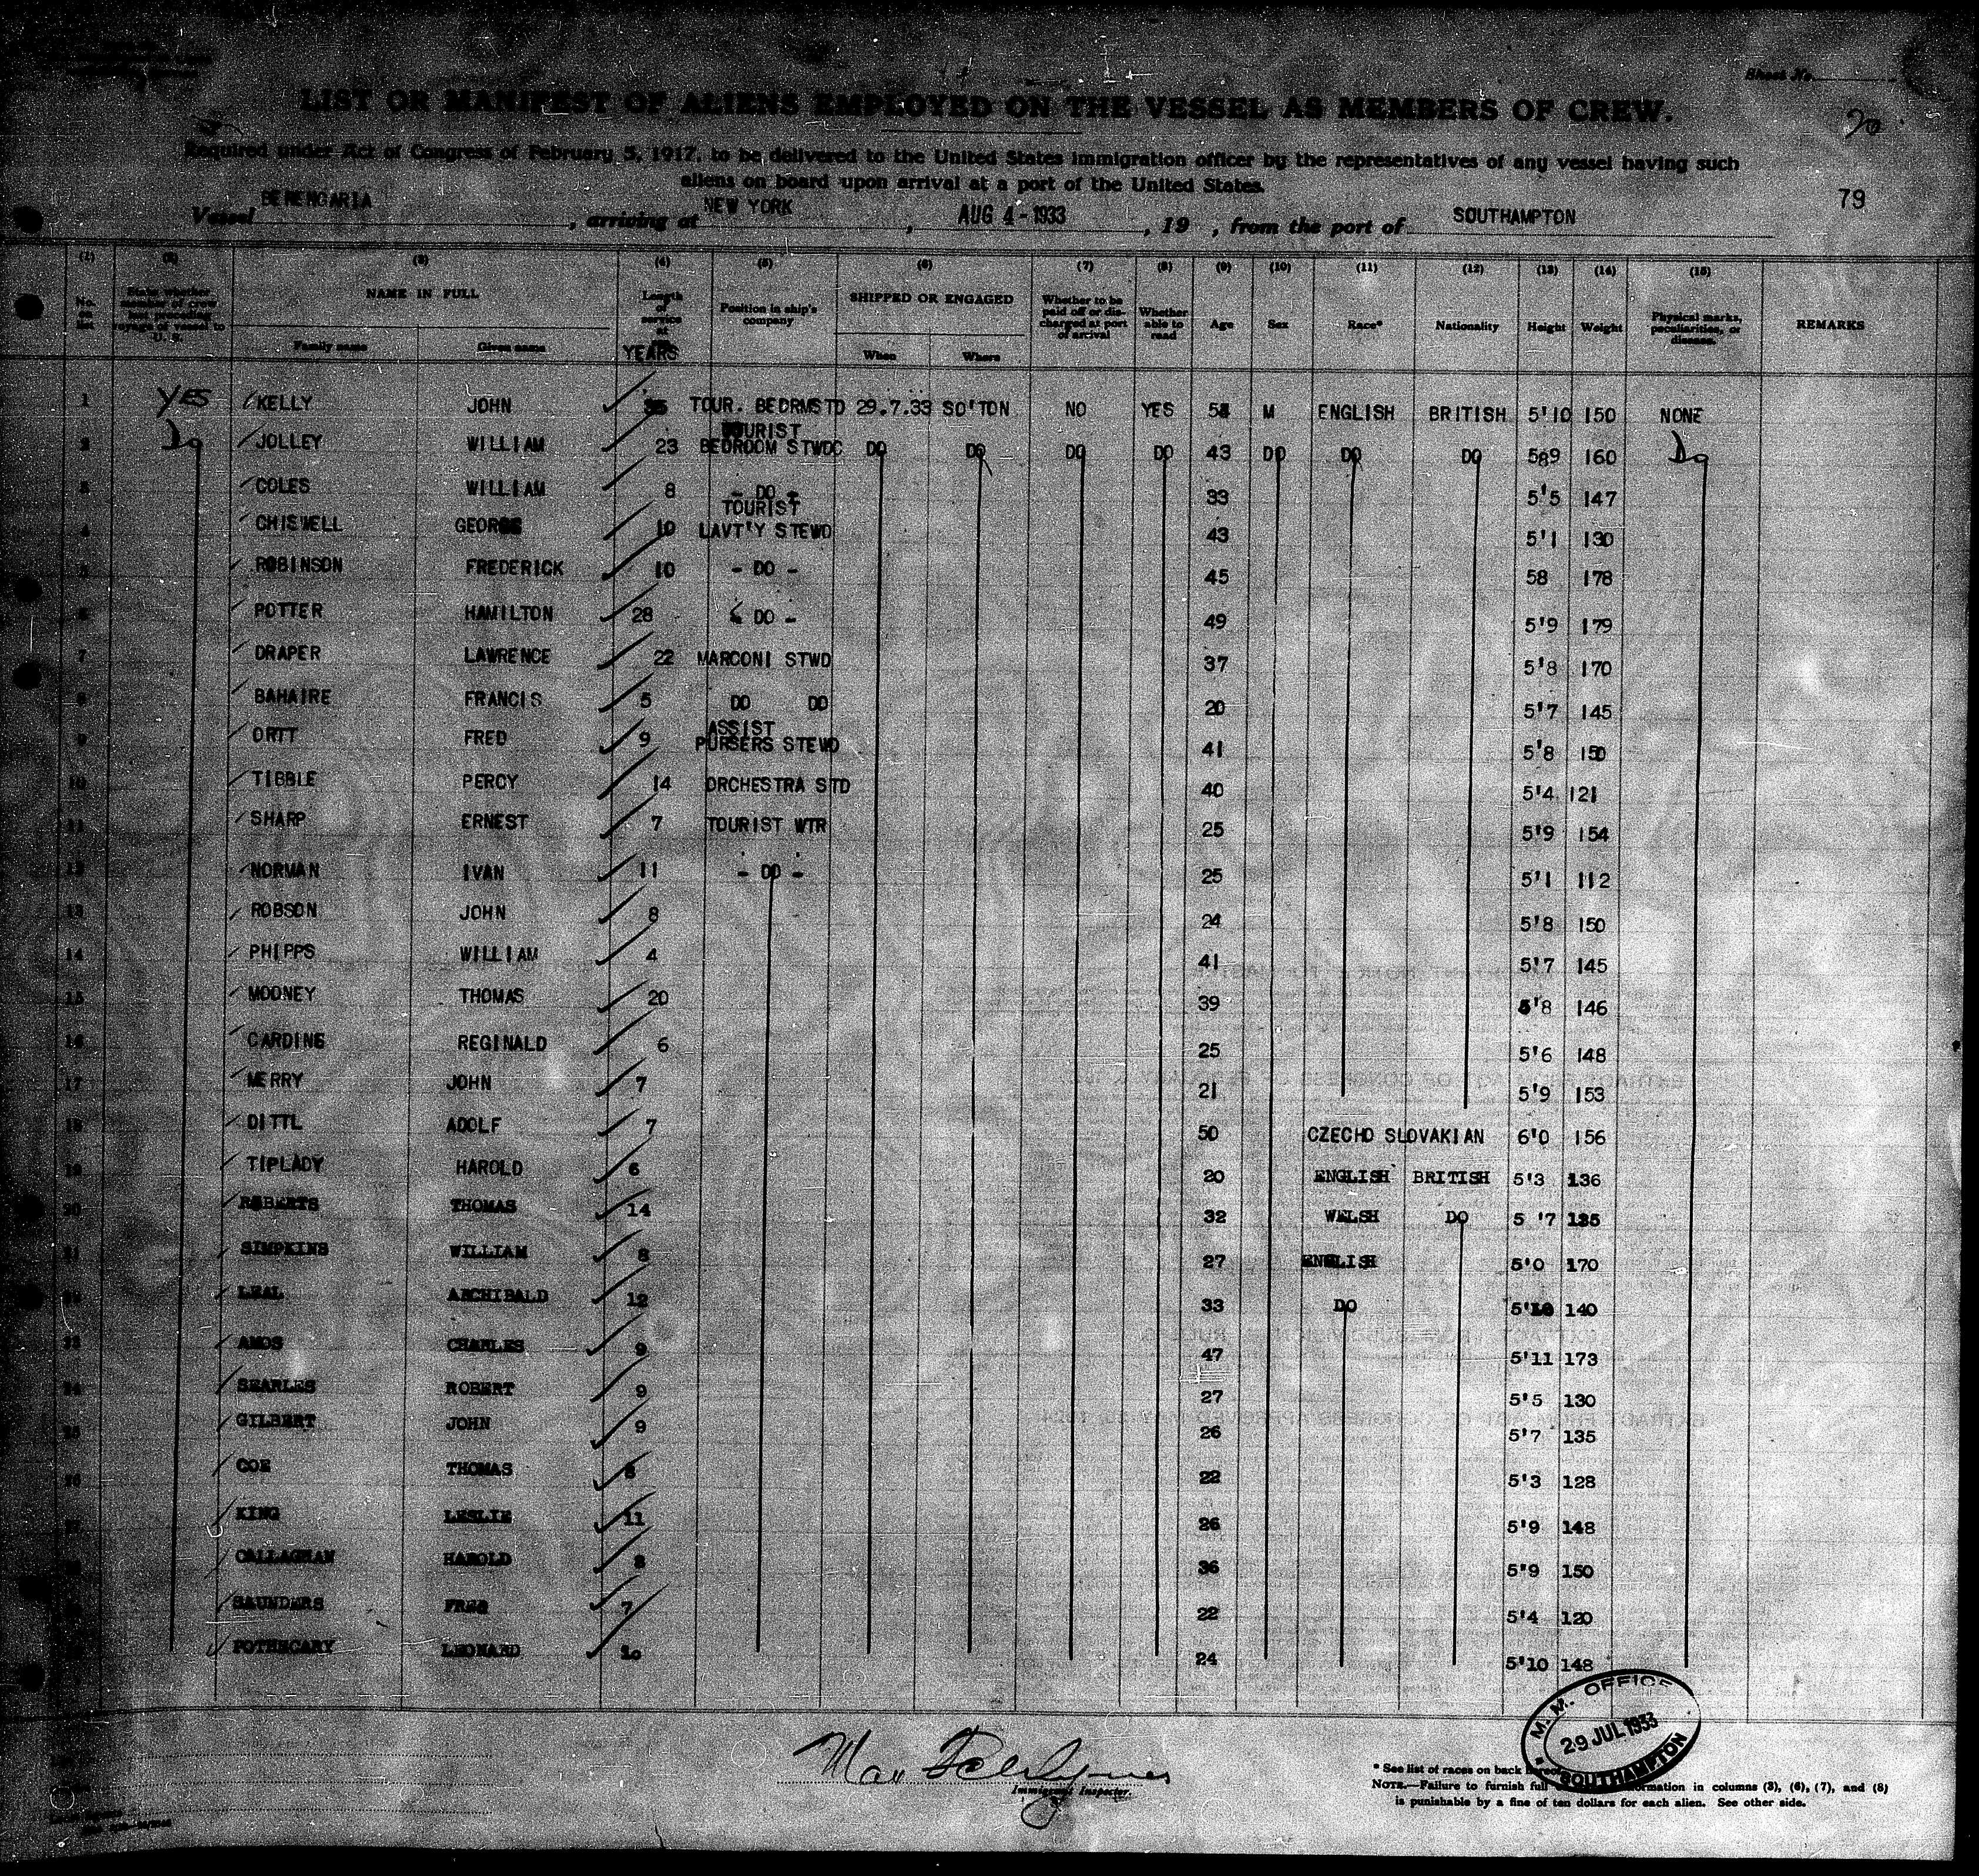 Sheet No.
LIST OR MANIFEST OF ALIENS EMPLOYED ON THE VESSEL AS MEMBERS OF CREW.
20
Required under Act of Congress of February 5, 1917, to be delivered to the United States immigration officer by the representatives of any vessel having such
aliens on board upon arrival at a port of the United States.
79
Vessel BERENGARIA, arriving at NEW YORK, AUG 4 - 1933, 19 , from the port of SOUTHAMPTON
(1) (2) (3) (4) (5) (6) (7) (8) (9) (10) (11) (12) (13) (14) (15)
No. on list State whether member of crew last preceding voyage of vessel to U. S. NAME IN FULL Family name Given name Length of service at YEARS Position in ship's company SHIPPED OR ENGAGED When Where Whether to be paid off or discharged at port of arrival Whether able to read Age Sex Race* Nationality Height Weight Physical marks, peculiarities, or disease. REMARKS
1 YES KELLY JOHN TOUR. BEDRMSTD 29.7.33 SO'TON NO YES M ENGLISH BRITISH 5'10 150 NONE
2 Do JOLLEY WILLIAM 23 TOURIST BEDROOM STWD DO DO DO DO 43 DO DO DO 5'9 160 Do
3 COLES WILLIAM 8 - DO - 33 5'5 147
4 CHISWELL GEORGE 10 TOURIST LAVT'Y STEWD 43 5'1 130
5 ROBINSON FREDERICK 10 - DO - 45 58 178
6 POTTER HAMILTON 28 - DO - 49 5'9 179
7 DRAPER LAWRENCE 22 MARCONI STWD 37 5'8 170
8 BAHAIRE FRANCIS 5 DO DO 20 5'7 145
9 ORTT FRED 9 ASSIST PURSERS STEWD 41 5'8 150
10 TIBBLE PERCY 14 ORCHESTRA STD 40 5'4 121
11 SHARP ERNEST 7 TOURIST WTR 25 5'9 154
12 NORMAN IVAN 11 - DO - 25 5'1 112
13 ROBSON JOHN 8 24 5'8 150
14 PHIPPS WILLIAM 4 41 5'7 145
15 MOONEY THOMAS 20 39 5'8 146
16 CARDING REGINALD 6 25 5'6 148
17 MERRY JOHN 7 21 5'9 153
18 DITTL ADOLF 7 50 CZECHO SLOVAKIAN 6'0 156
19 TIPLADY HAROLD 6 20 ENGLISH BRITISH 5'3 136
20 ROBERTS THOMAS 14 32 WELSH DO 5 '7 135
21 SIMPKINS WILLIAM 8 27 ENGLISH 5'0 170
22 LEAL ARCHIBALD 12 33 DO 5'10 140
23 AMOS CHARLES 9 47 5'11 173
24 SEARLES ROBERT 9 27 5'5 130
25 GILBERT JOHN 9 26 5'7 135
26 COE THOMAS 22 5'3 128
27 KING LESLIE 11 26 5'9 148
28 CALLAGHAN HAROLD 8 36 5'9 150
SAUNDERS FRED 7 22 5'4 120
POTHECARY LEONARD 10 24 5'10 148
M. M. OFFICE
29 JUL 1933
SOUTHAMPTON
Immigrant Inspector.
* See list of races on back hereof.
NOTE.—Failure to furnish full information in columns (3), (6), (7), and (8)
is punishable by a fine of ten dollars for each alien. See other side.